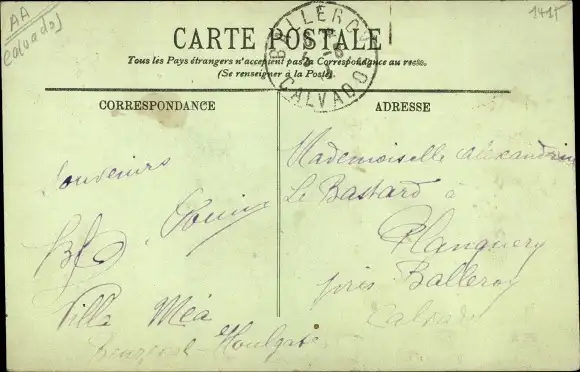 AA
Calvados
1415
CARTE POSTALE
Tous les Pays étrangers n'acceptent pas la Correspondance au recto.
(Se renseigner à la Poste).
BALLEROY
CALVADOS
CORRESPONDANCE
Souvenirs
Villa Méa
Beuzeval-Houlgate
ADRESSE
Mademoiselle Alexandrine
Le Bastard à
Planquery
près Balleroy
Calvados